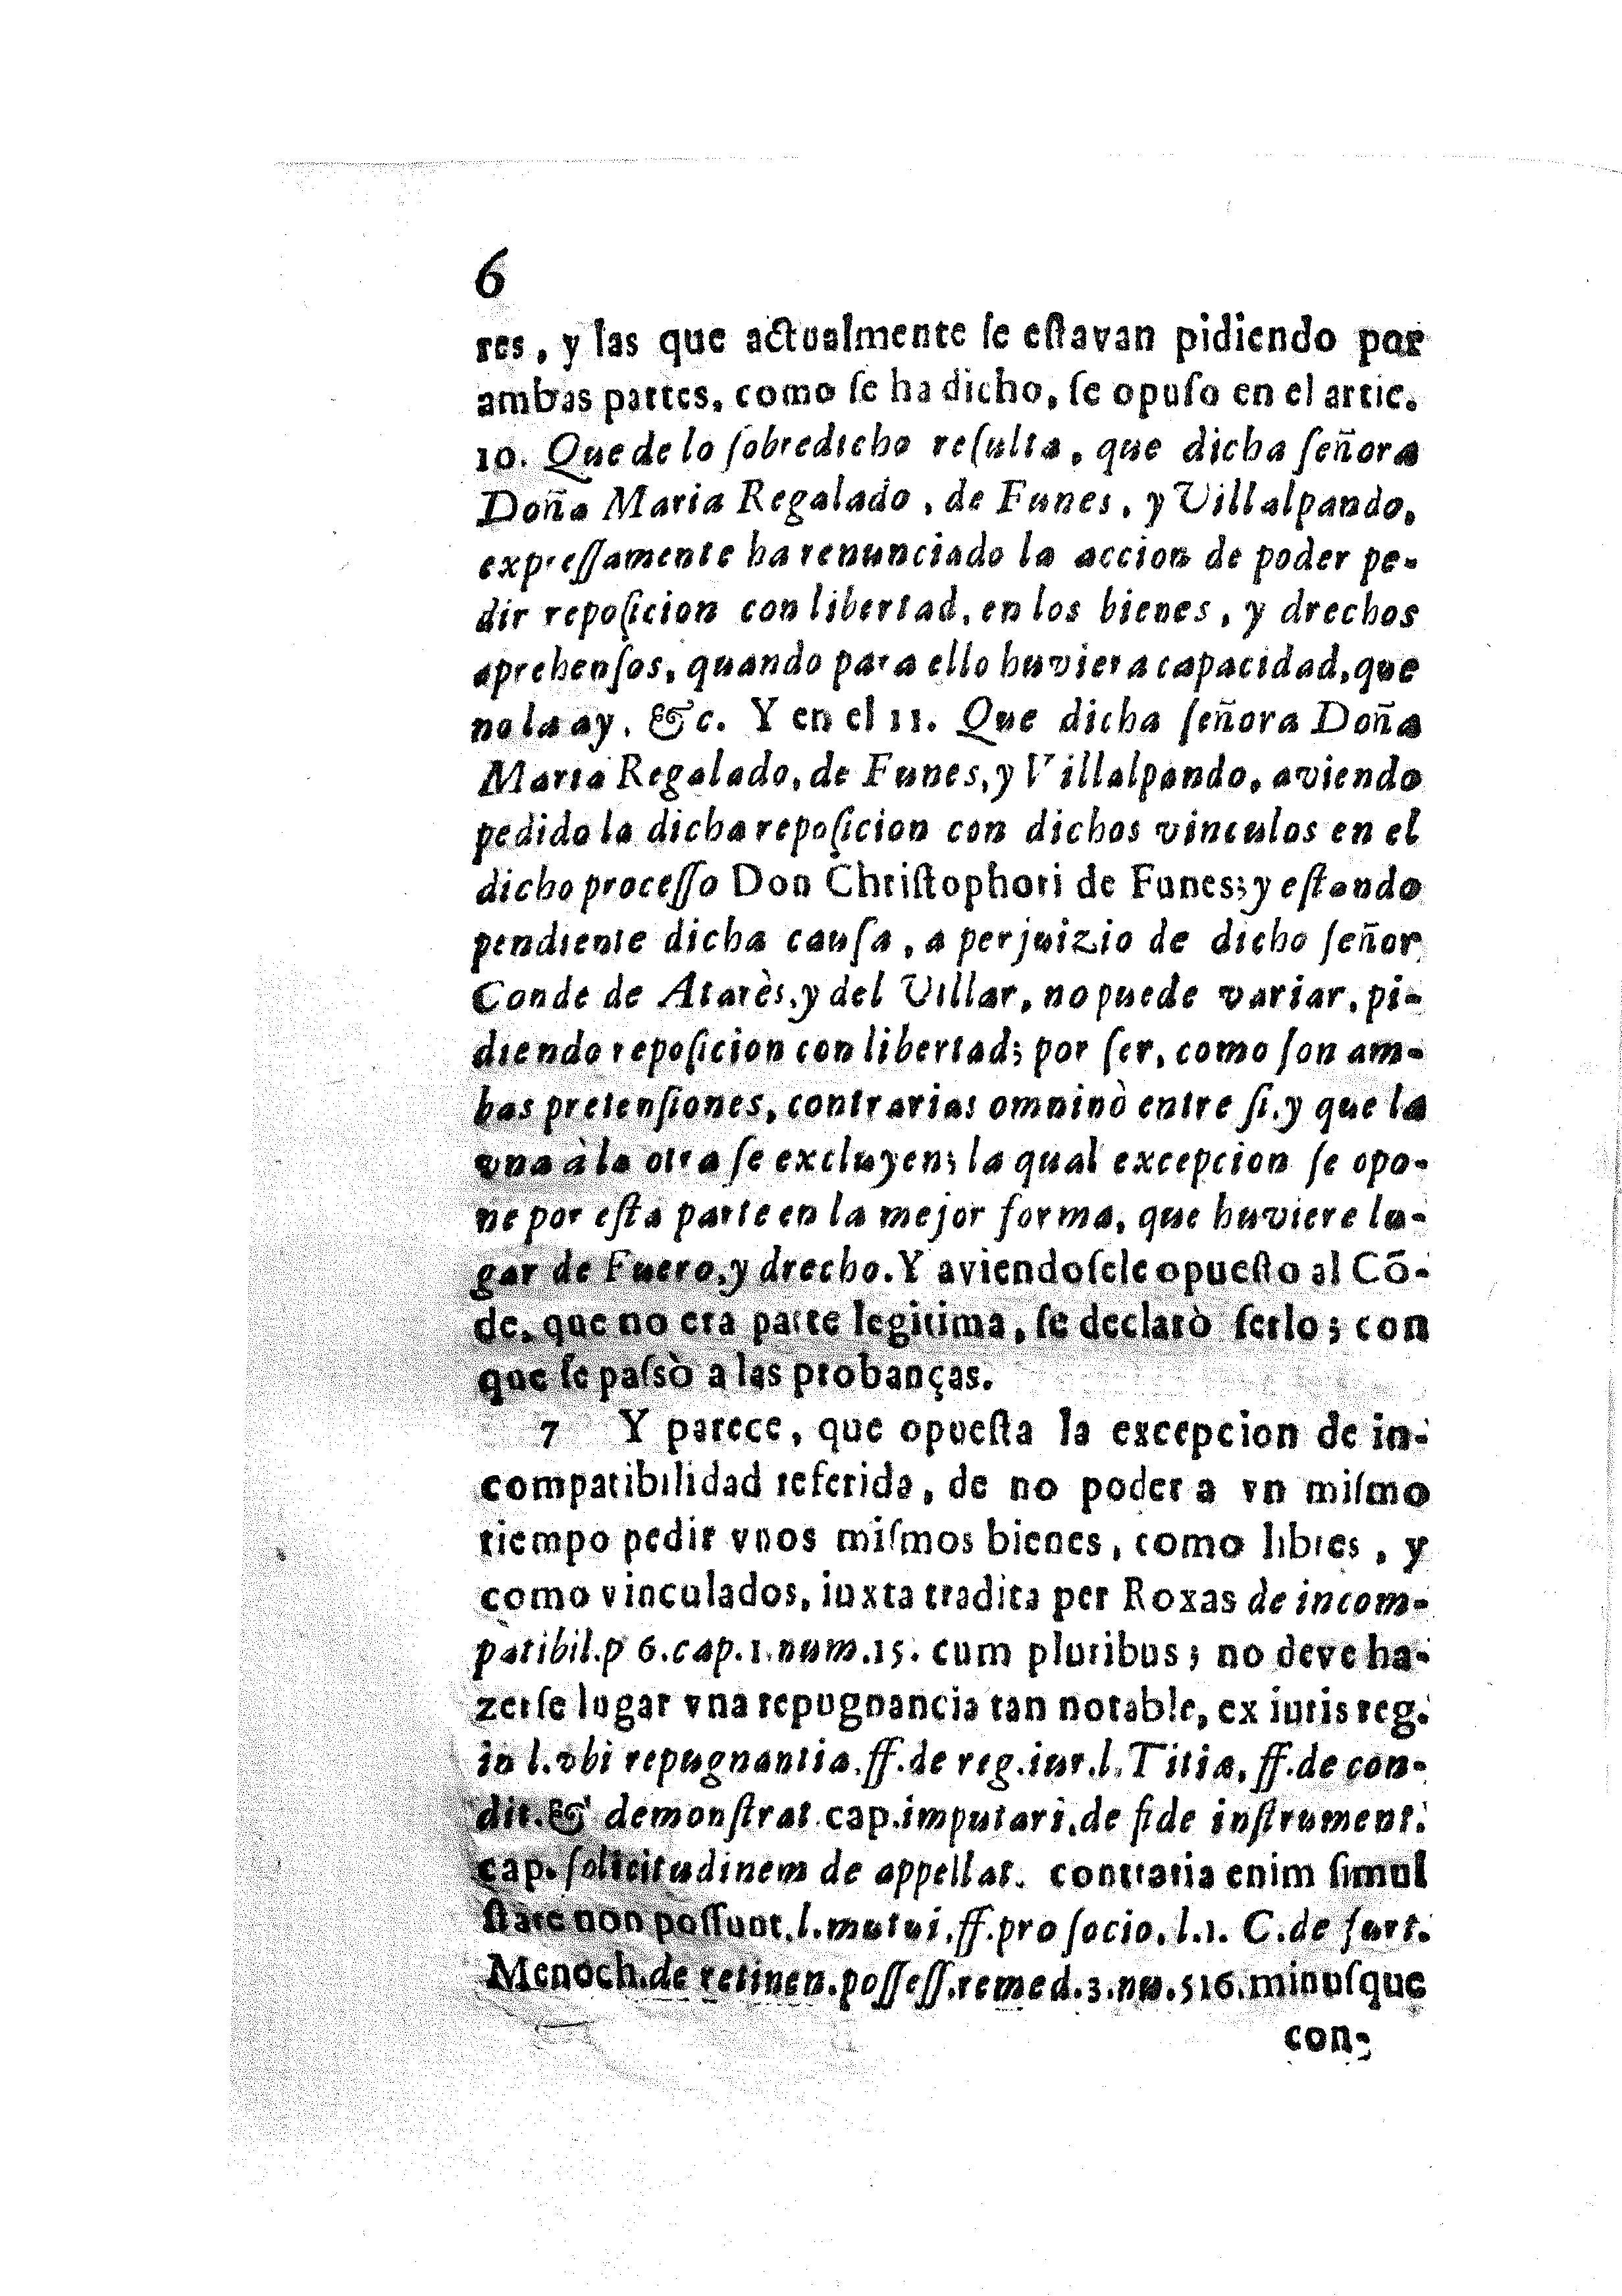 6
res, y las que actualmente ſe eſtavan pidiendo por
ambas partes, como ſe ha dicho, ſe opuſo en el artic.
10. Que de lo ſobredicho reſulta, que dicha ſeñora
Doña Maria Regalado, de Funes, y Villalpando,
expreſſamente ha renunciado la accion de poder pe-
dir repoſicion con libertad, en los bienes, y drechos
aprehenſos, quando para ello huviera capacidad, que
no la ay, &c. Y en el 11. Que dicha ſeñora Doña
Maria Regalado, de Funes, y Villalpando, aviendo
pedido la dicha repoſicion con dichos vinculos en el
dicho proceſſo Don Chriſtophori de Funes; y eſtando
pendiente dicha cauſa, a perjuizio de dicho ſeñor
Conde de Atarès, y del Villar, no puede variar, pi-
diendo repoſicion con libertad; por ſer, como ſon am-
bas pretenſiones, contrarias omninò entre ſi, y que la
vna à la otra ſe excluyen; la qual excepcion ſe opo-
ne por eſta parte en la mejor forma, que huviere lu-
gar de Fuero, y drecho. Y aviendoſele opueſto al Cõ-
de, que no era parte legitima, ſe declarò ſerlo; con
que ſe paſsò a las probanças.
7 Y parece, que opueſta la excepcion de in-
compatibilidad referida, de no poder a vn miſmo
tiempo pedir vnos miſmos bienes, como libres, y
como vinculados, iuxta tradita per Roxas de incom-
patibil. p 6. cap. 1. num. 15. cum pluribus; no deve ha-
zerſe lugar vna repugnancia tan notable, ex iuris reg.
in l. vbi repugnantia. ff. de reg. iur. l. Titia, ff. de con-
dit. & demonſtrat. cap. imputari, de fide inſtrument.
cap. ſollicitudinem de appellat. contraria enim ſimul
ſtare non poſſunt, l. mutui, ff. pro ſocio, l. 1. C. de furt.
Menoch. de retinen. poſſeſſ. remed. 3. nu. 516. minuſque
con-